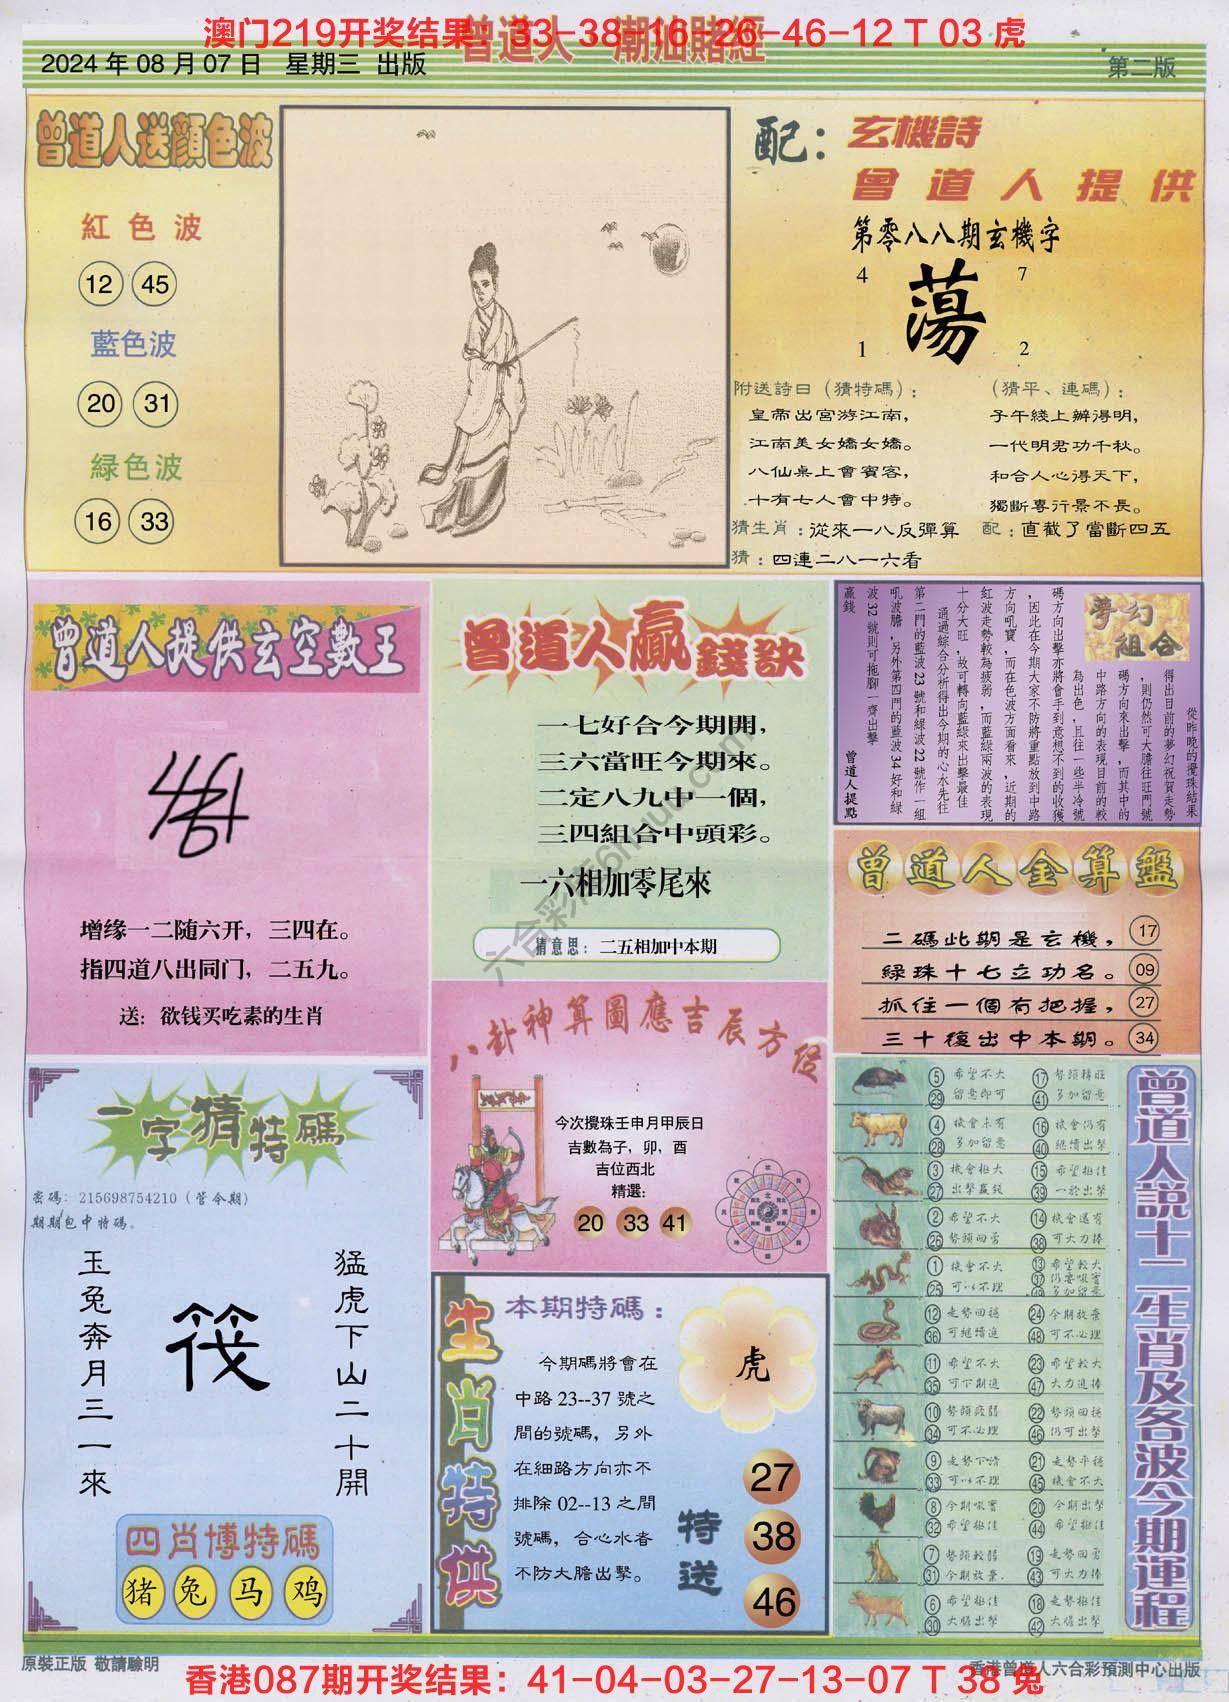 澳门219开奖结果：33-38-16-26-46-12 T 03 虎
曾道人 潮汕賭經
2024 年 08 月 07 日 星期三 出版
第二版
曾道人送顏色波
紅色波
12 45
藍色波
20 31
綠色波
16 33
配：玄機詩
曾道人提供
第零八八期玄機字
4 7
蕩
1 2
附送詩曰（猜特碼）：
皇帝出宮游江南，
江南美女嬌女嬌。
八仙桌上會賓客，
十有七人會中特。
（猜平、連碼）：
子午綫上辦得明，
一代明君功千秋。
和合人心得天下，
獨斷專行景不長。
猜生肖：從來一八反彈算 配：直截了當斷四五
猜：四連二八一六看
曾道人提供玄空數王
增缘一二随六开，三四在。
指四道八出同门，二五九。
送：欲钱买吃素的生肖
曾道人贏錢訣
一七好合今期開，
三六當旺今期來。
二定八九中一個，
三四組合中頭彩。
一六相加零尾來
猜意思：二五相加中本期
夢幻組合
從昨晚的攪珠結果
得出目前的夢幻祝賀走勢
，則仍然可大膽往旺門號
碼方向來出擊，而其中的
中路方向的表現目前的較
為出色，且往一些半冷號
碼方向出擊亦將會手到意想不到的收獲
，因此在今期大家不防將重點放到中路
方向吼寶，而在色波方面看來，近期的
紅波走勢較為疲弱，而藍綠兩波的表現
十分大旺，故可轉向藍綠來出擊最佳
通過綜合分析得出今期的心水先往
第二門的藍波23號和綠波22號作一組
吼波膽，另外第四門的藍波34好和綠
波32號則可拖腳一齊出擊
贏錢
曾道人提點
曾道人金算盤
二碼此期是玄機， 17
綠珠十七立功名。 09
抓住一個有把握， 27
三十復出中本期。 34
八卦神算圖應吉辰方位
今次攪珠壬申月甲辰日
吉數為子，卯，酉
吉位西北
精選：
20 33 41
一字猜特碼
密碼：215698754210（管令期）
期期包中特碼。
玉兔奔月三一來
筏
猛虎下山二十開
四肖博特碼
猪 兔 马 鸡
生肖特供
本期特碼：
虎
今期碼將會在
中路 23--37 號之
間的號碼，另外
在細路方向亦不
排除 02--13 之間
號碼，合心水者
不防大膽出擊。
特送
27
38
46
曾道人說十二生肖及各波今期運程
5 希望不大 17 勢頭轉旺
29 留意即可 41 多加留意
4 機會未有 16 機會仍有
28 多加留意 40 繼續出擊
3 機會極大 15 希望極佳
27 出擊贏錢 39 一於出擊
2 希望不大 14 機會還有
26 勢頭回勇 38 可大力捧
1 機會不大 13 希望較大
25 可以不理
12 走勢回穩 24 今期放棄
36 可繼續追 48 可不必理
11 希望不大 23 希望較大
35 可下期追 47 大力追捧
10 勢頭疲弱 22 勢頭回穩
34 可不必理 46 仍可出擊
9 走勢不清 21 走勢平穩
33 可以不理 45 機會不大
8 今期吼實 20 今期出擊
32 希望極佳 44 希望極佳
7 勢頭較弱 19 走勢回勇
31 今期放棄 43 可大力捧
6 希望極佳 18 走勢極佳
30 大膽出擊 42 大膽出擊
六合彩
原裝正版 敬請驗明
香港曾道人六合彩預測中心出版
香港087期开奖结果：41-04-03-27-13-07 T 38 兔